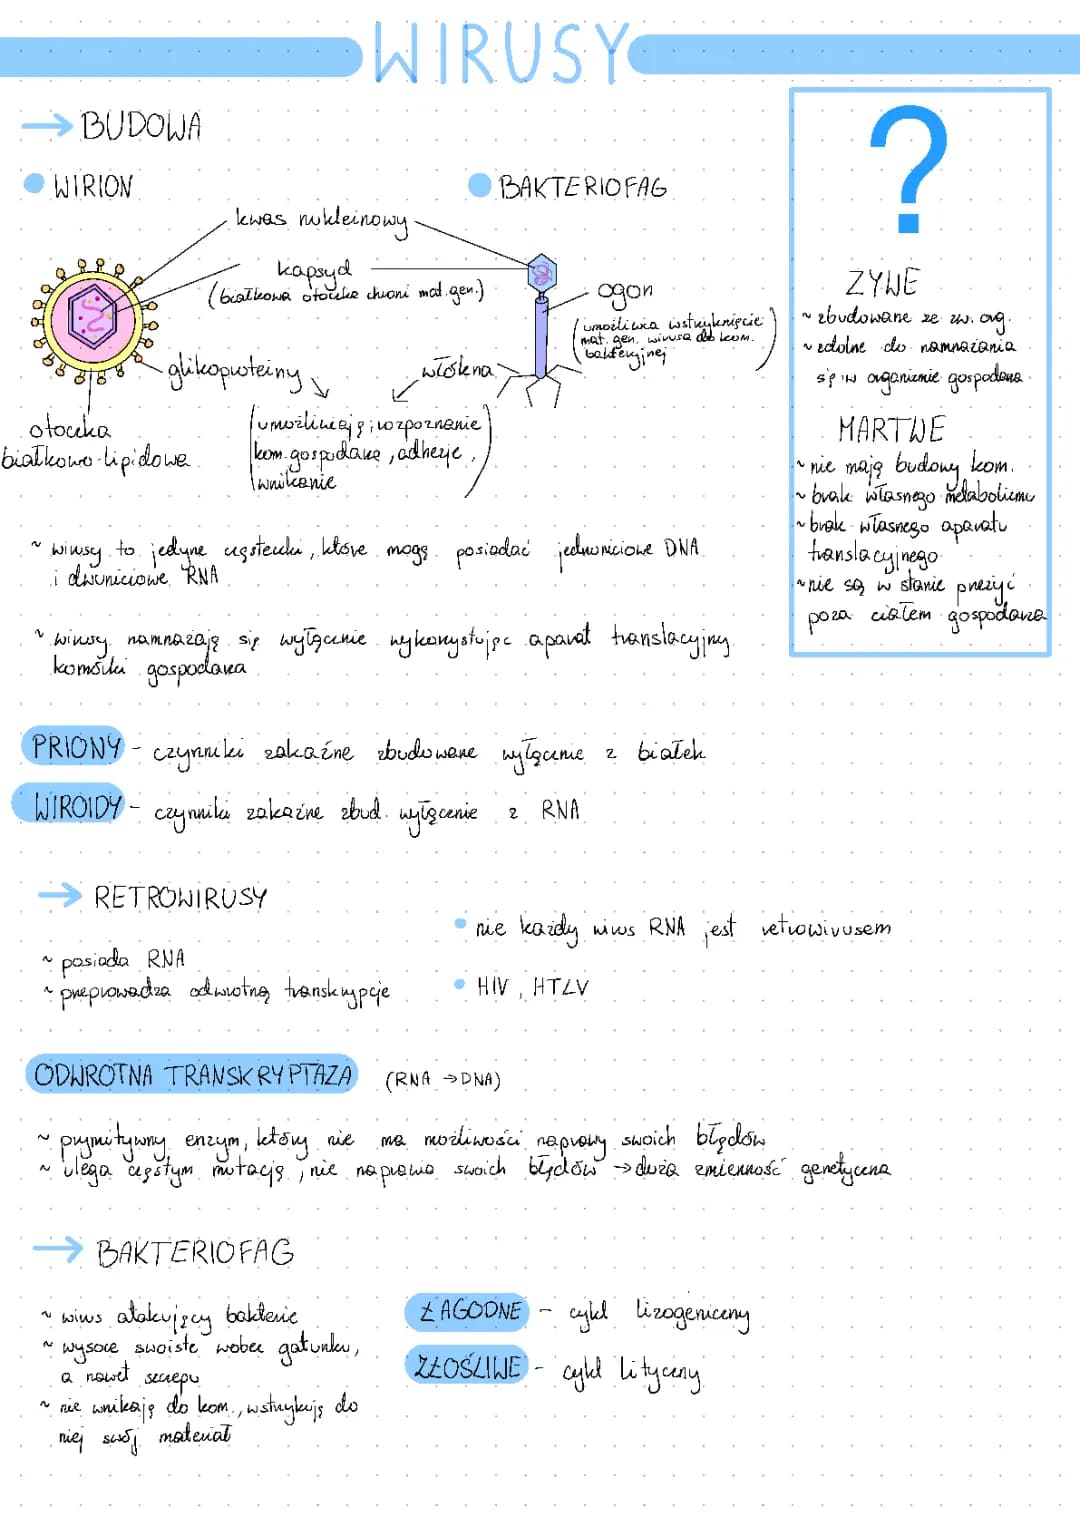 WIRUSY
→ BUDOWA
• WIRION
• BAKTERIOFAG
kwas nukleinowy
kapsyd
(białkowa otoczka chroni mat. gen.)
ogon
(umożliwia wstrzyknięcie
mat. gen. wirusa do kom.
bakteryjnej)
glikoproteiny
włókna
otoczka
białkowo-lipidowa
(umożliwiają rozpoznanie
kom. gospodarza, adhezję,
wnikanie)
~ wirusy to jedyne cząsteczki, które mogą posiadać jednoniciowe DNA
i dwuniciowe RNA
~ wirusy namnażają się wyłącznie wykorzystując aparat translacyjny
komórki gospodarza
?
ŻYWE
~ zbudowane ze zw. org.
~ zdolne do namnażania
się w organizmie gospodarza
MARTWE
~ nie mają budowy kom.
~ brak własnego metabolizmu
~ brak własnego aparatu
translacyjnego
~ nie są w stanie przeżyć
poza ciałem gospodarza
PRIONY - czynniki zakaźne zbudowane wyłącznie z białek
WIROIDY - czynniki zakaźne zbud. wyłącznie z RNA
→ RETROWIRUSY
~ posiada RNA
~ przeprowadza odwrotną transkrypcję
• nie każdy wirus RNA jest retrowirusem
• HIV, HTLV
ODWROTNA TRANSKRYPTAZA (RNA → DNA)
~ prymitywny enzym, który nie ma możliwości naprawy swoich błędów
~ ulega częstym mutacją, nie naprawia swoich błędów → duża zmienność genetyczna
→ BAKTERIOFAG
~ wirus atakujący bakterie
~ wysoce swoiste wobec gatunku,
a nawet szczepu
~ nie wnikają do kom., wstrzykują do
niej swój materiał
ŁAGODNE - cykl lizogeniczny
ZŁOŚLIWE - cykl lityczny